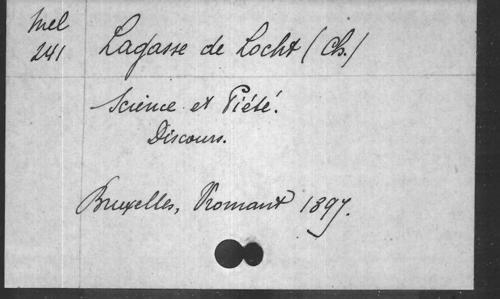 Mel
241
Lagasse de Locht (Ch.)
Science et Piété.
Discours.
Bruxelles, Vromant 1897.